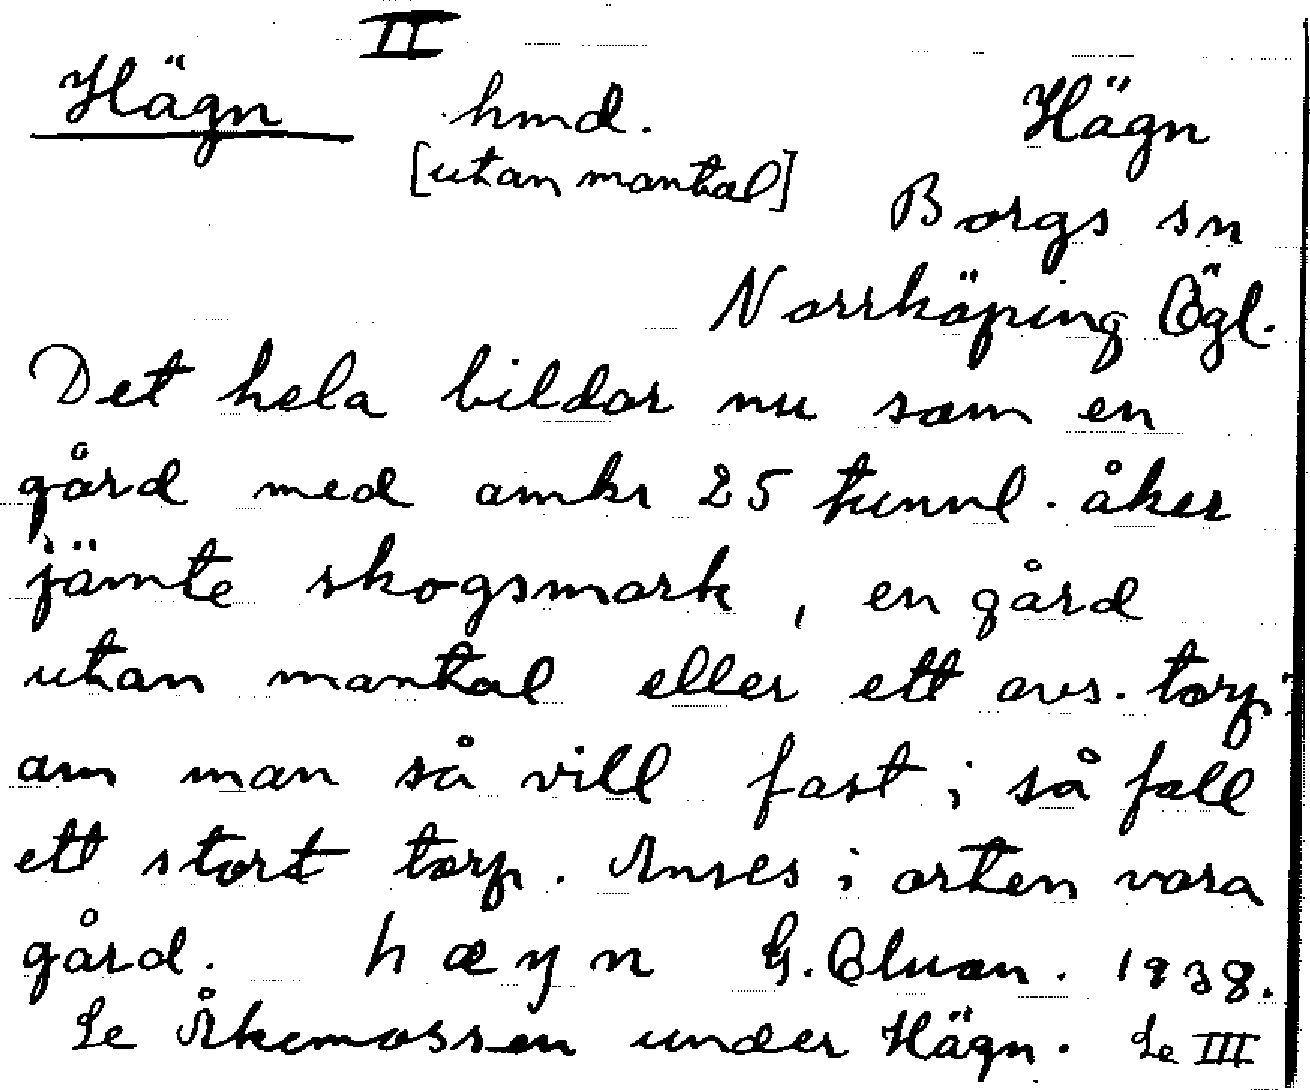 II
Hägn hmd. Hägn
[utan mantal]
Borgs sn
Norrköping Ögl.
Det hela bildar nu som en
gård med omkr 25 tunnl. åker
jämte skogsmark, en gård
utan mantal eller ett avs. torp
om man så vill fast i så fall
ett stort torp. Anses i orten vara
gård. hæyn G. 1938.
Se Åkemossen under Hägn. Se III